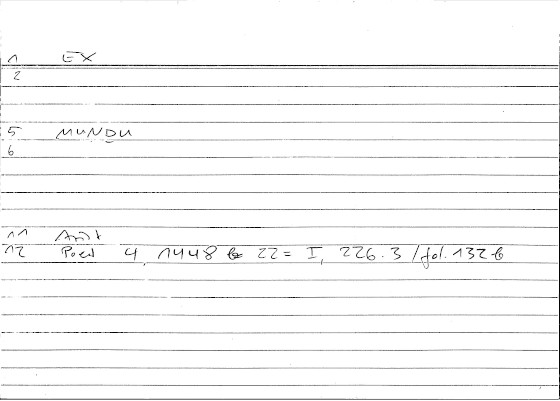 1 EX
2
5 MUNDU
6
11 Arist
12 Poet 4, 1448 b 22 = I, 226.3 / fol. 132 b